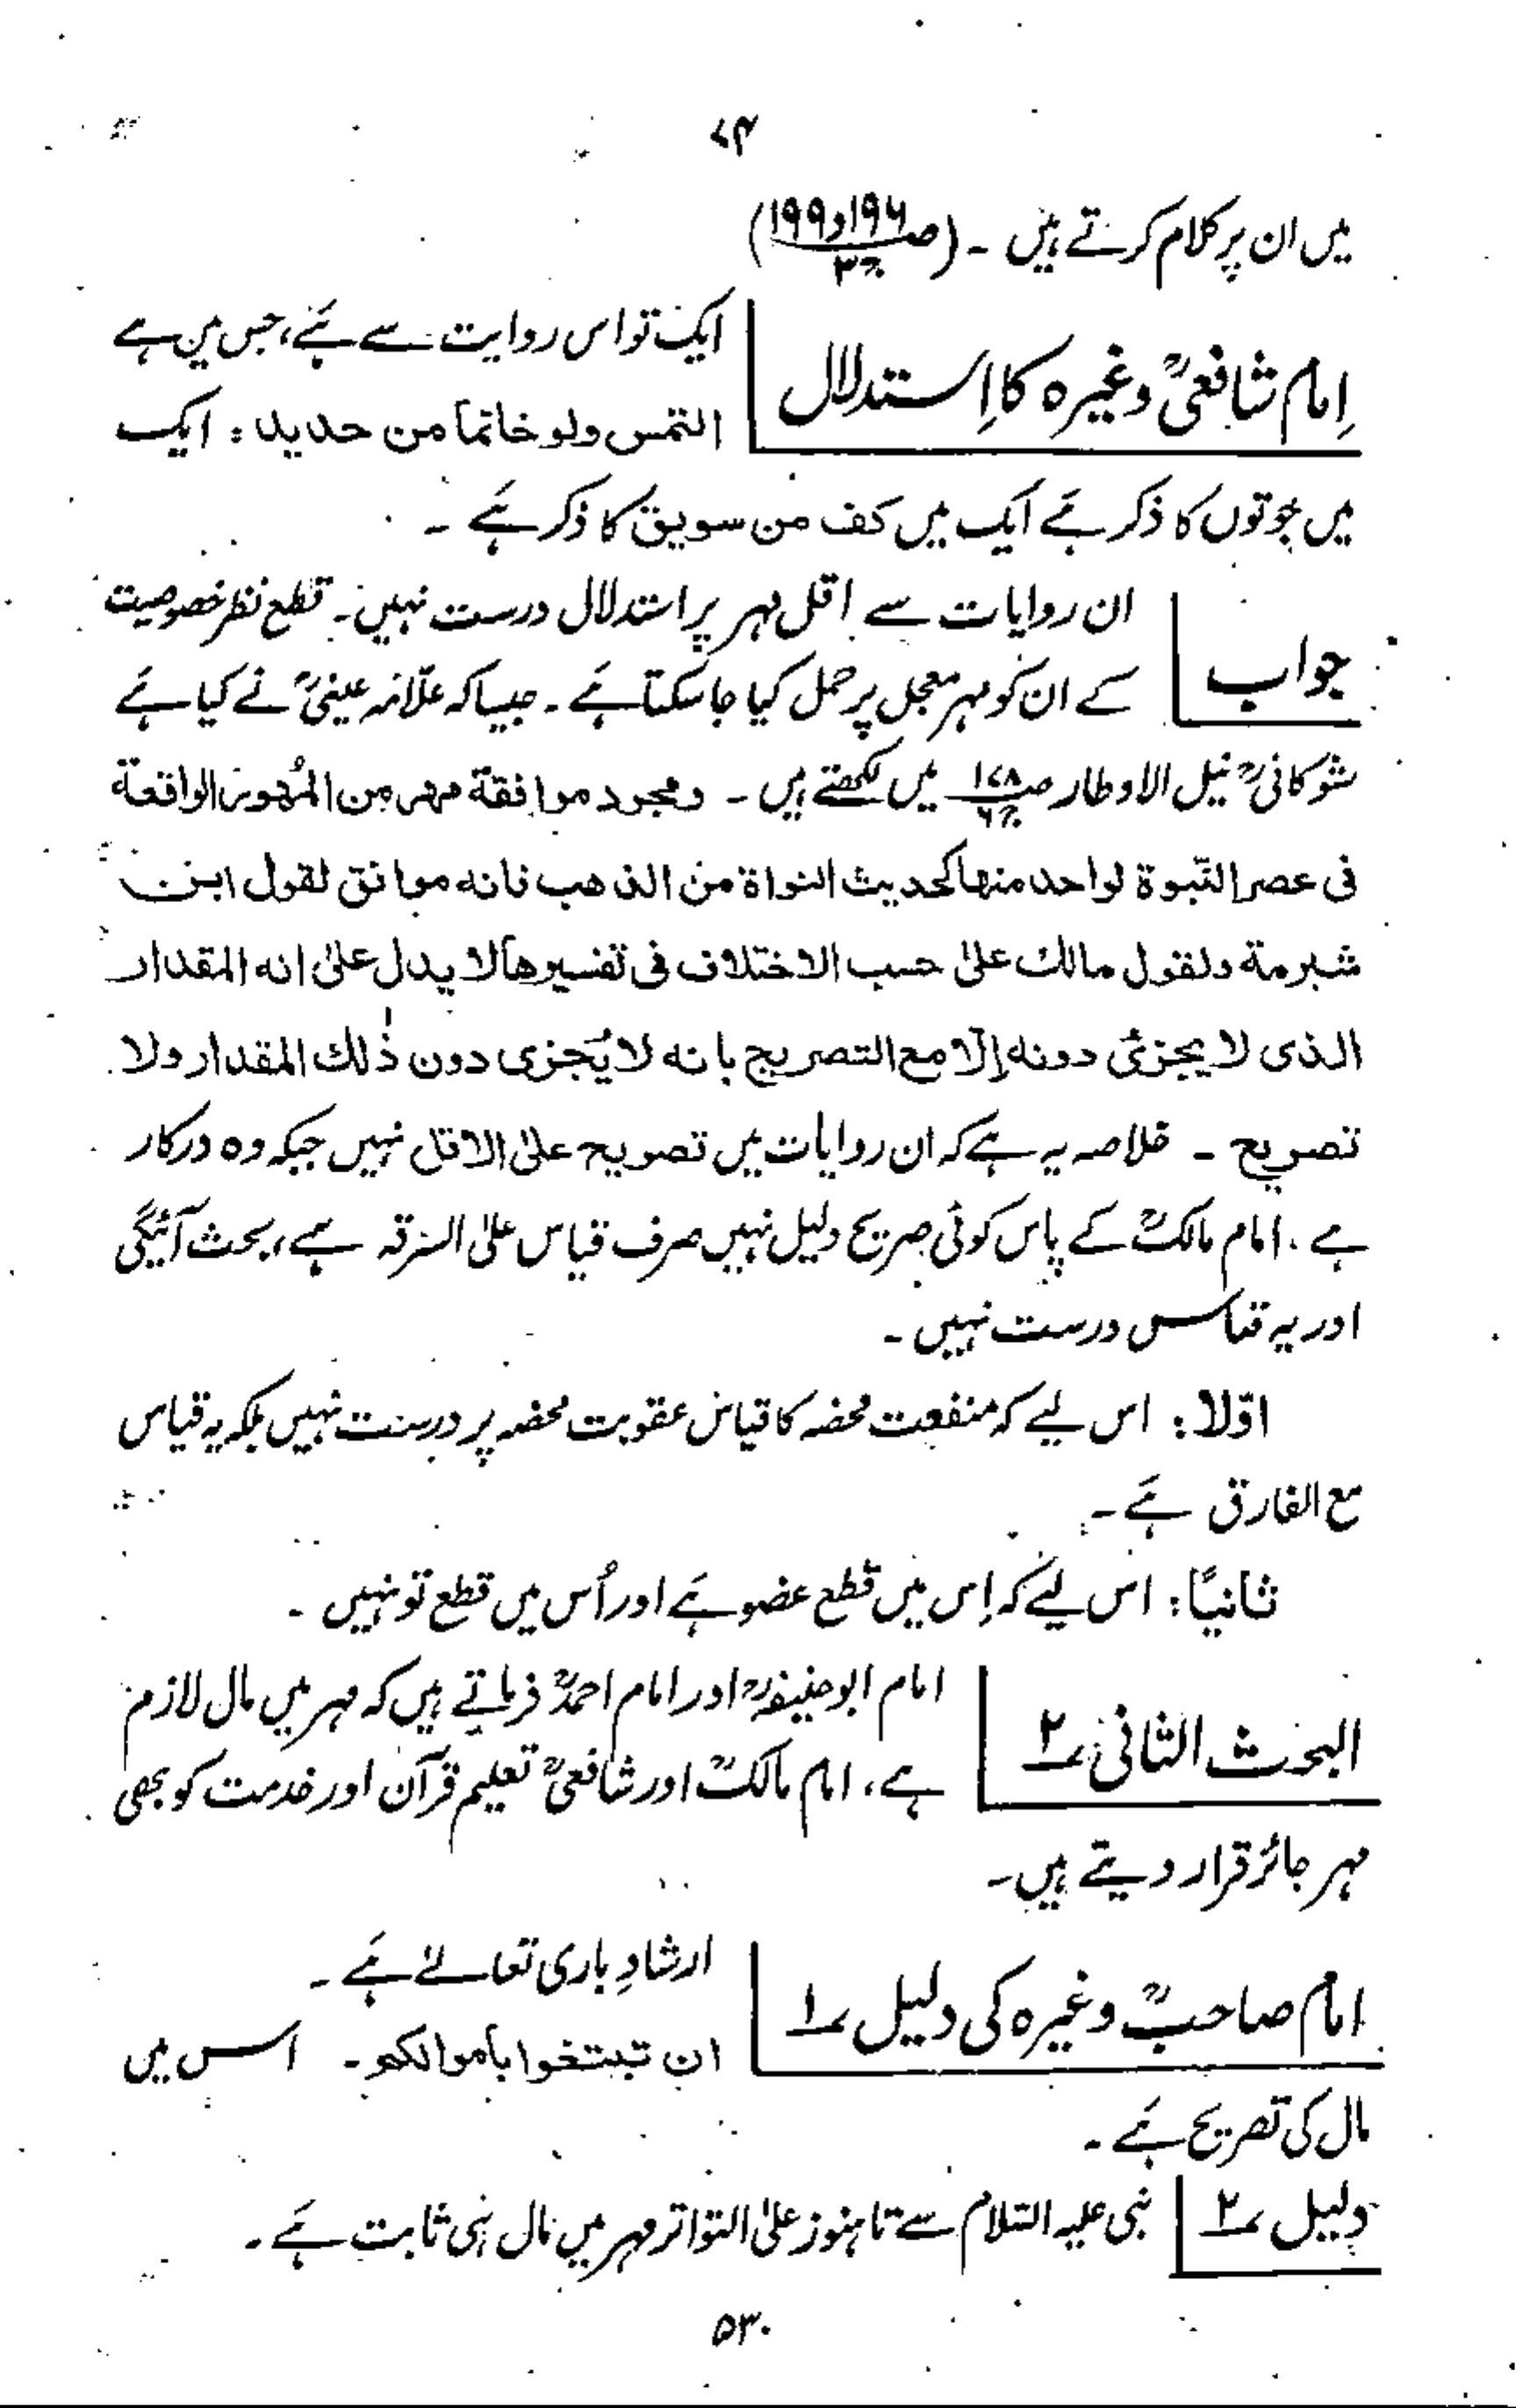 ۷۴
میں ان پر کلام کرتے ہیں ۔ (صـ۱۹۶و۱۹۹ جـ۳)
امام شافعیؒ وغیرہ کا اِستدلال
ایک تو اس روایت سے ہے، جس میں ہے
التمس ولو خاتما من حدید : ایک
میں جوتوں کا ذکر ہے ایک میں کف من سویق کا ذکر ہے ۔
جواب
ان روایات سے اقل مہر پر استدلال درست نہیں۔ قطع نظر خصوصیت
کے ان کو مہر معجل پر حمل کیا جا سکتا ہے ۔ جیسا کہ علّامہ عینیؒ نے کیا ہے
شوکانیؒ نیل الاوطار صـ۱۷۸ جـ۶ میں لکھتے ہیں ۔ ومجرد موافقة مهر من المُهور الواقعة
فی عصر النّبوة لواحد منها کحدیث النواة من الذهب فانه موافق لقول ابن
شبرمة ولقول مالك علیٰ حسب الاختلاف فی تفسیرها لا یدل علیٰ انه المقدار
الذی لا یجزئ دونه إلّا مع التصریح بانه لا یُجزی دون ذٰلك المقدار ولا
تصریح ۔ خلاصہ یہ ہے کہ ان روایات میں تصریح علی الاقل نہیں جبکہ وہ درکار
ہے ۔ امام مالکؒ کے پاس کوئی صریح دلیل نہیں صرف قیاس علیٰ السرقہ ہے، بحث آئیگی
اور یہ قیاس درست نہیں ۔
اوّلا: اس لیے کہ منفعت محضہ کا قیاس عقوبت محضہ پر درست نہیں بلکہ یہ قیاس
مع الفارق ہے ۔
ثانیًا: اس لیے کہ اِس میں قطع عضو ہے اور اُس میں قطع تو نہیں ۔
البحث الثانی ؍۲
امام ابو حنیفہؒ اور امام احمدؒ فرماتے ہیں کہ مہر میں مال لازم
ہے، امام مالکؒ اور شافعیؒ تعلیم قرآن اور خدمت کو بھی
مہر جائز قرار دیتے ہیں ۔
امام صاحبؒ وغیرہ کی دلیل ؍۱
ارشادِ باری تعالےٰ ہے ۔
ان تبتغوا بأموالکم ۔ اس میں
مال کی تصریح ہے ۔
دلیل ؍۲
نبی علیہ السّلام سے تا ہنوز علیٰ التواتر مہر میں مال ہی ثابت ہے ۔
۵۳۰